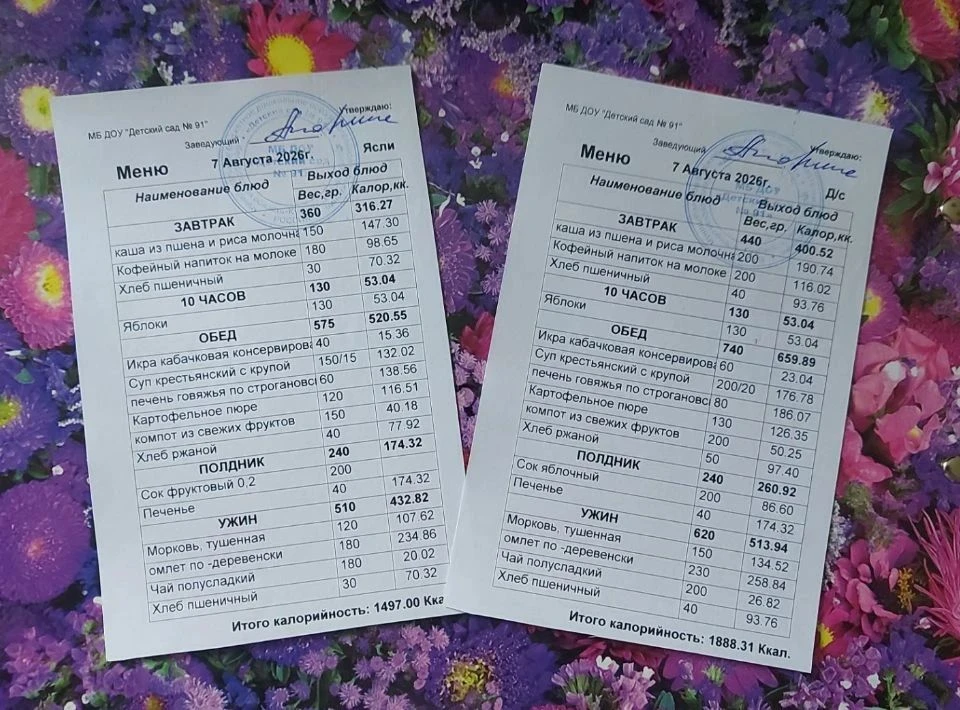 МБ ДОУ "Детский сад № 91"
Утверждаю:
Заведующий
Меню
7 Августа 2026г.
Ясли
Наименование блюд Выход блюд
Вес,гр. Калор,кк.
ЗАВТРАК 360 316.27
каша из пшена и риса молочна 150 147.30
Кофейный напиток на молоке 180 98.65
Хлеб пшеничный 30 70.32
10 ЧАСОВ 130 53.04
Яблоки 130 53.04
ОБЕД 575 520.55
Икра кабачковая консервирова 40 15.36
Суп крестьянский с крупой 150/15 132.02
печень говяжья по строгановс 60 138.56
Картофельное пюре 120 116.51
компот из свежих фруктов 150 40.18
Хлеб ржаной 40 77.92
ПОЛДНИК 240 174.32
Сок фруктовый 0,2 200
Печенье 40 174.32
УЖИН 510 432.82
Морковь, тушенная 120 107.62
омлет по -деревенски 180 234.86
Чай полусладкий 180 20.02
Хлеб пшеничный 30 70.32
Итого калорийность: 1497.00 Кка
МБ ДОУ "Детский сад № 91"
Утверждаю:
Заведующий
Меню
7 Августа 2026г.
Д/с
Наименование блюд Выход блюд
Вес,гр. Калор,кк.
ЗАВТРАК 440 400.52
каша из пшена и риса молочна 200 190.74
Кофейный напиток на молоке 200 116.02
Хлеб пшеничный 40 93.76
10 ЧАСОВ 130 53.04
Яблоки 130 53.04
ОБЕД 740 659.89
Икра кабачковая консервирова 60 23.04
Суп крестьянский с крупой 200/20 176.78
печень говяжья по строгановс 80 186.07
Картофельное пюре 130 126.35
компот из свежих фруктов 200 50.25
Хлеб ржаной 50 97.40
ПОЛДНИК 240 260.92
Сок яблочный 200 86.60
Печенье 40 174.32
УЖИН 620 513.94
Морковь, тушенная 150 134.52
омлет по -деревенски 230 258.84
Чай полусладкий 200 26.82
Хлеб пшеничный 40 93.76
Итого калорийность: 1888.31 Ккал.